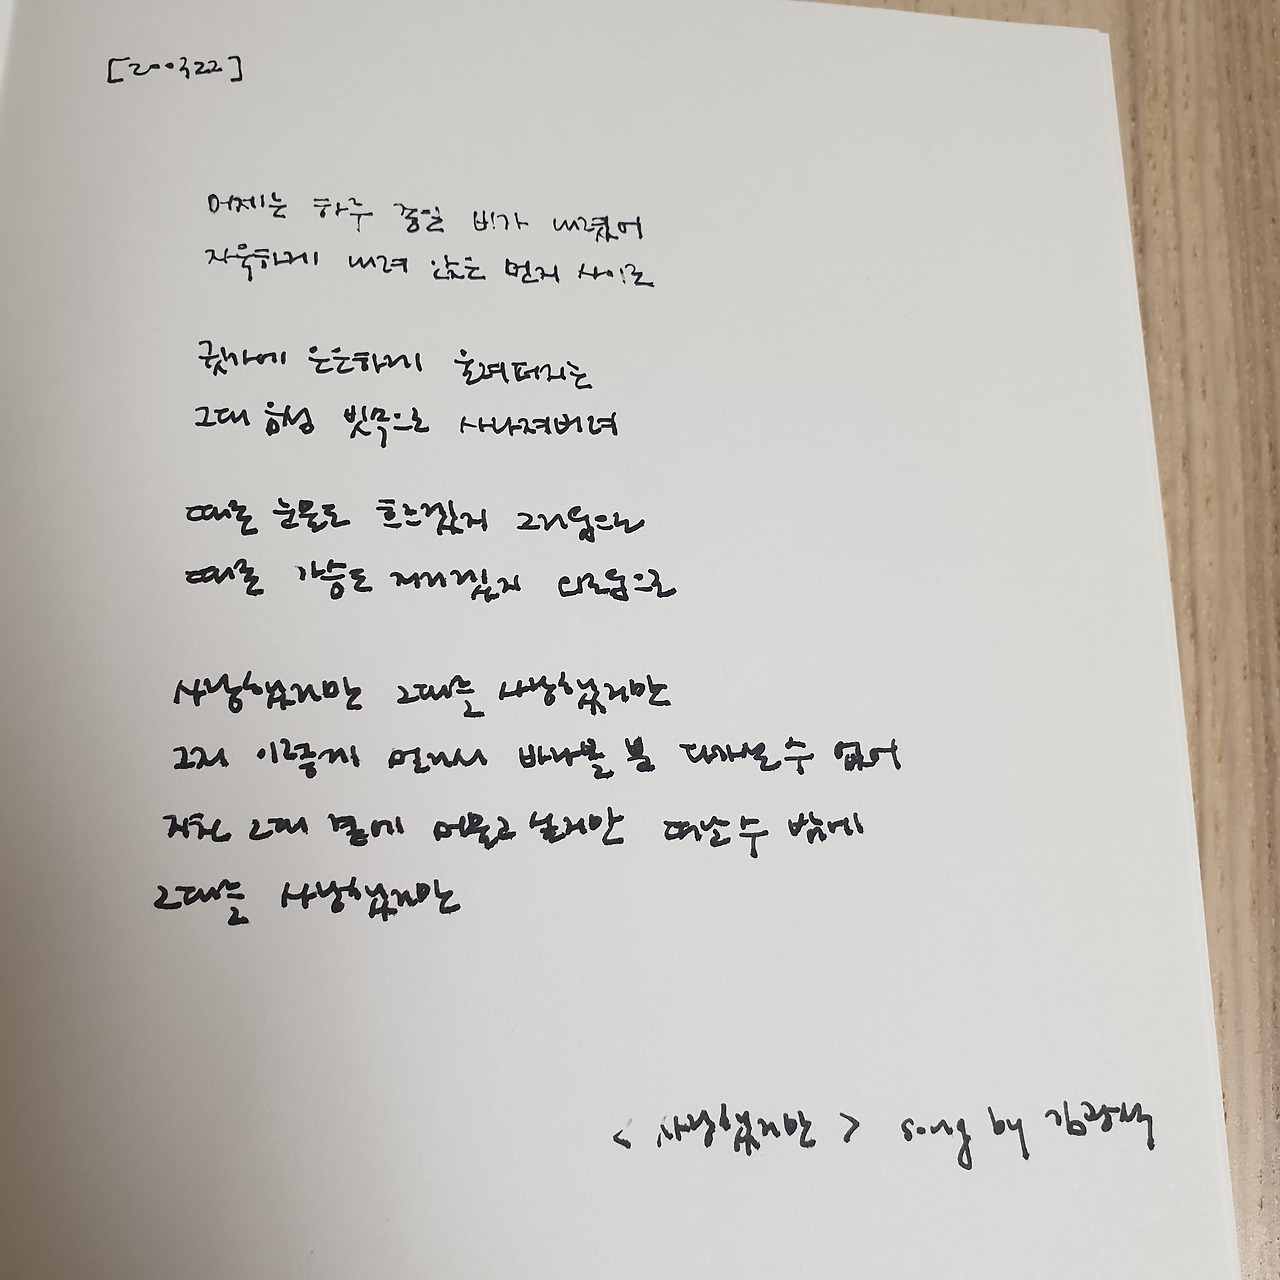 [200322]
어제는 하루 종일 비가 내렸어
자욱하게 내려 앉은 먼지 사이로
귓가에 은은하게 울려퍼지는
그대 음성 빗속으로 사라져버려
때론 눈물도 흐르겠지 그리움으로
때론 가슴도 저리겠지 외로움으로
사랑했지만 그대를 사랑했지만
그저 이렇게 멀리서 바라볼 뿐 다가설 수 없어
지친 그대 곁에 머물고 싶지만 떠날 수 밖에
그대를 사랑했지만
< 사랑했지만 > song by 김광석